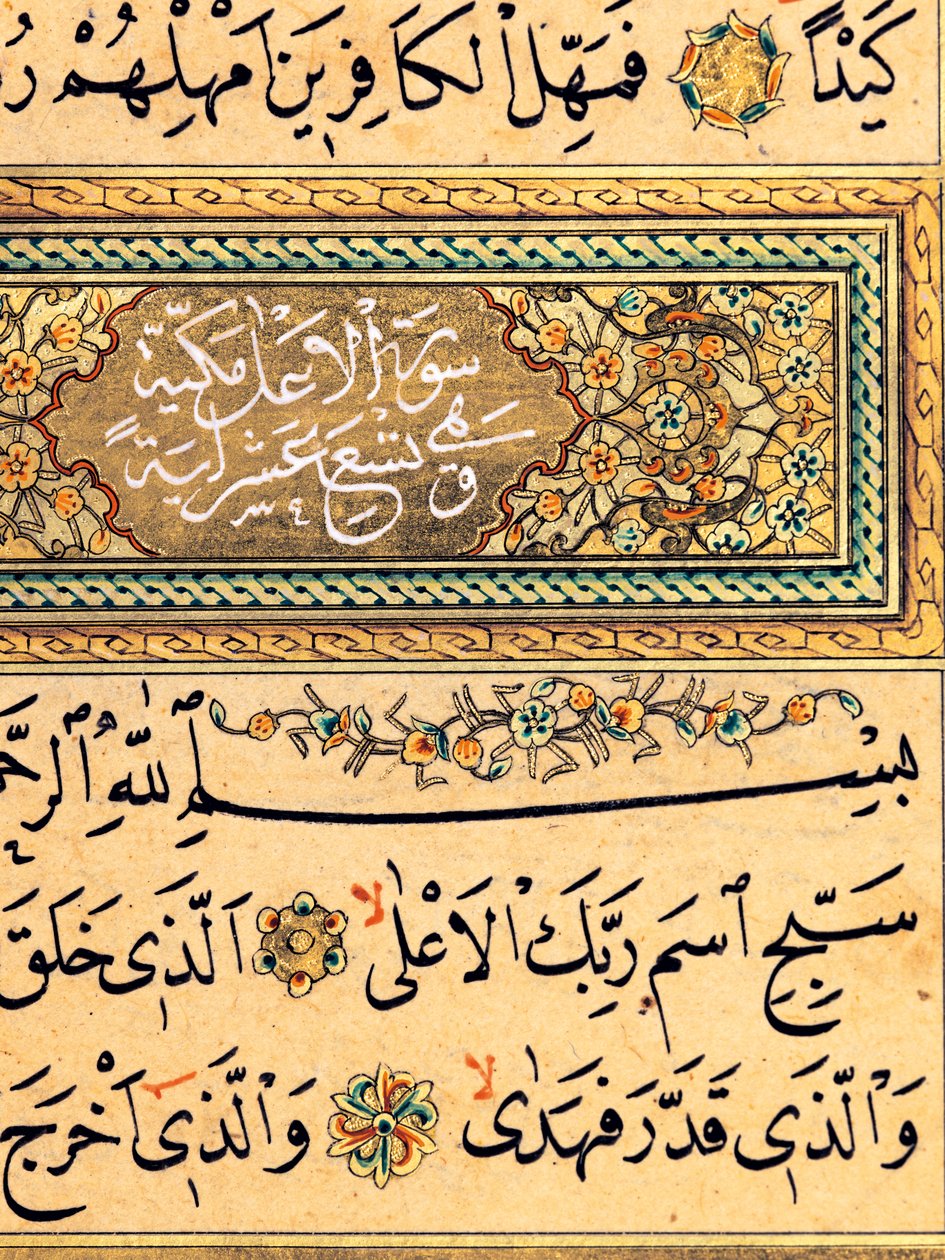 كَيْدًا فَمَهِّلِ الْكَافِرِينَ اَمْهِلْهُمْ
سورة الاعلى مكية
وهي تسع عشر اية
بِسْمِ اللّٰهِ الرَّحْ
سَبِّحِ اسْمَ رَبِّكَ الْاَعْلٰى لا اَلَّذِي خَلَقَ
وَالَّذِي قَدَّرَ فَهَدٰى لا وَالَّذِي اَخْرَجَ